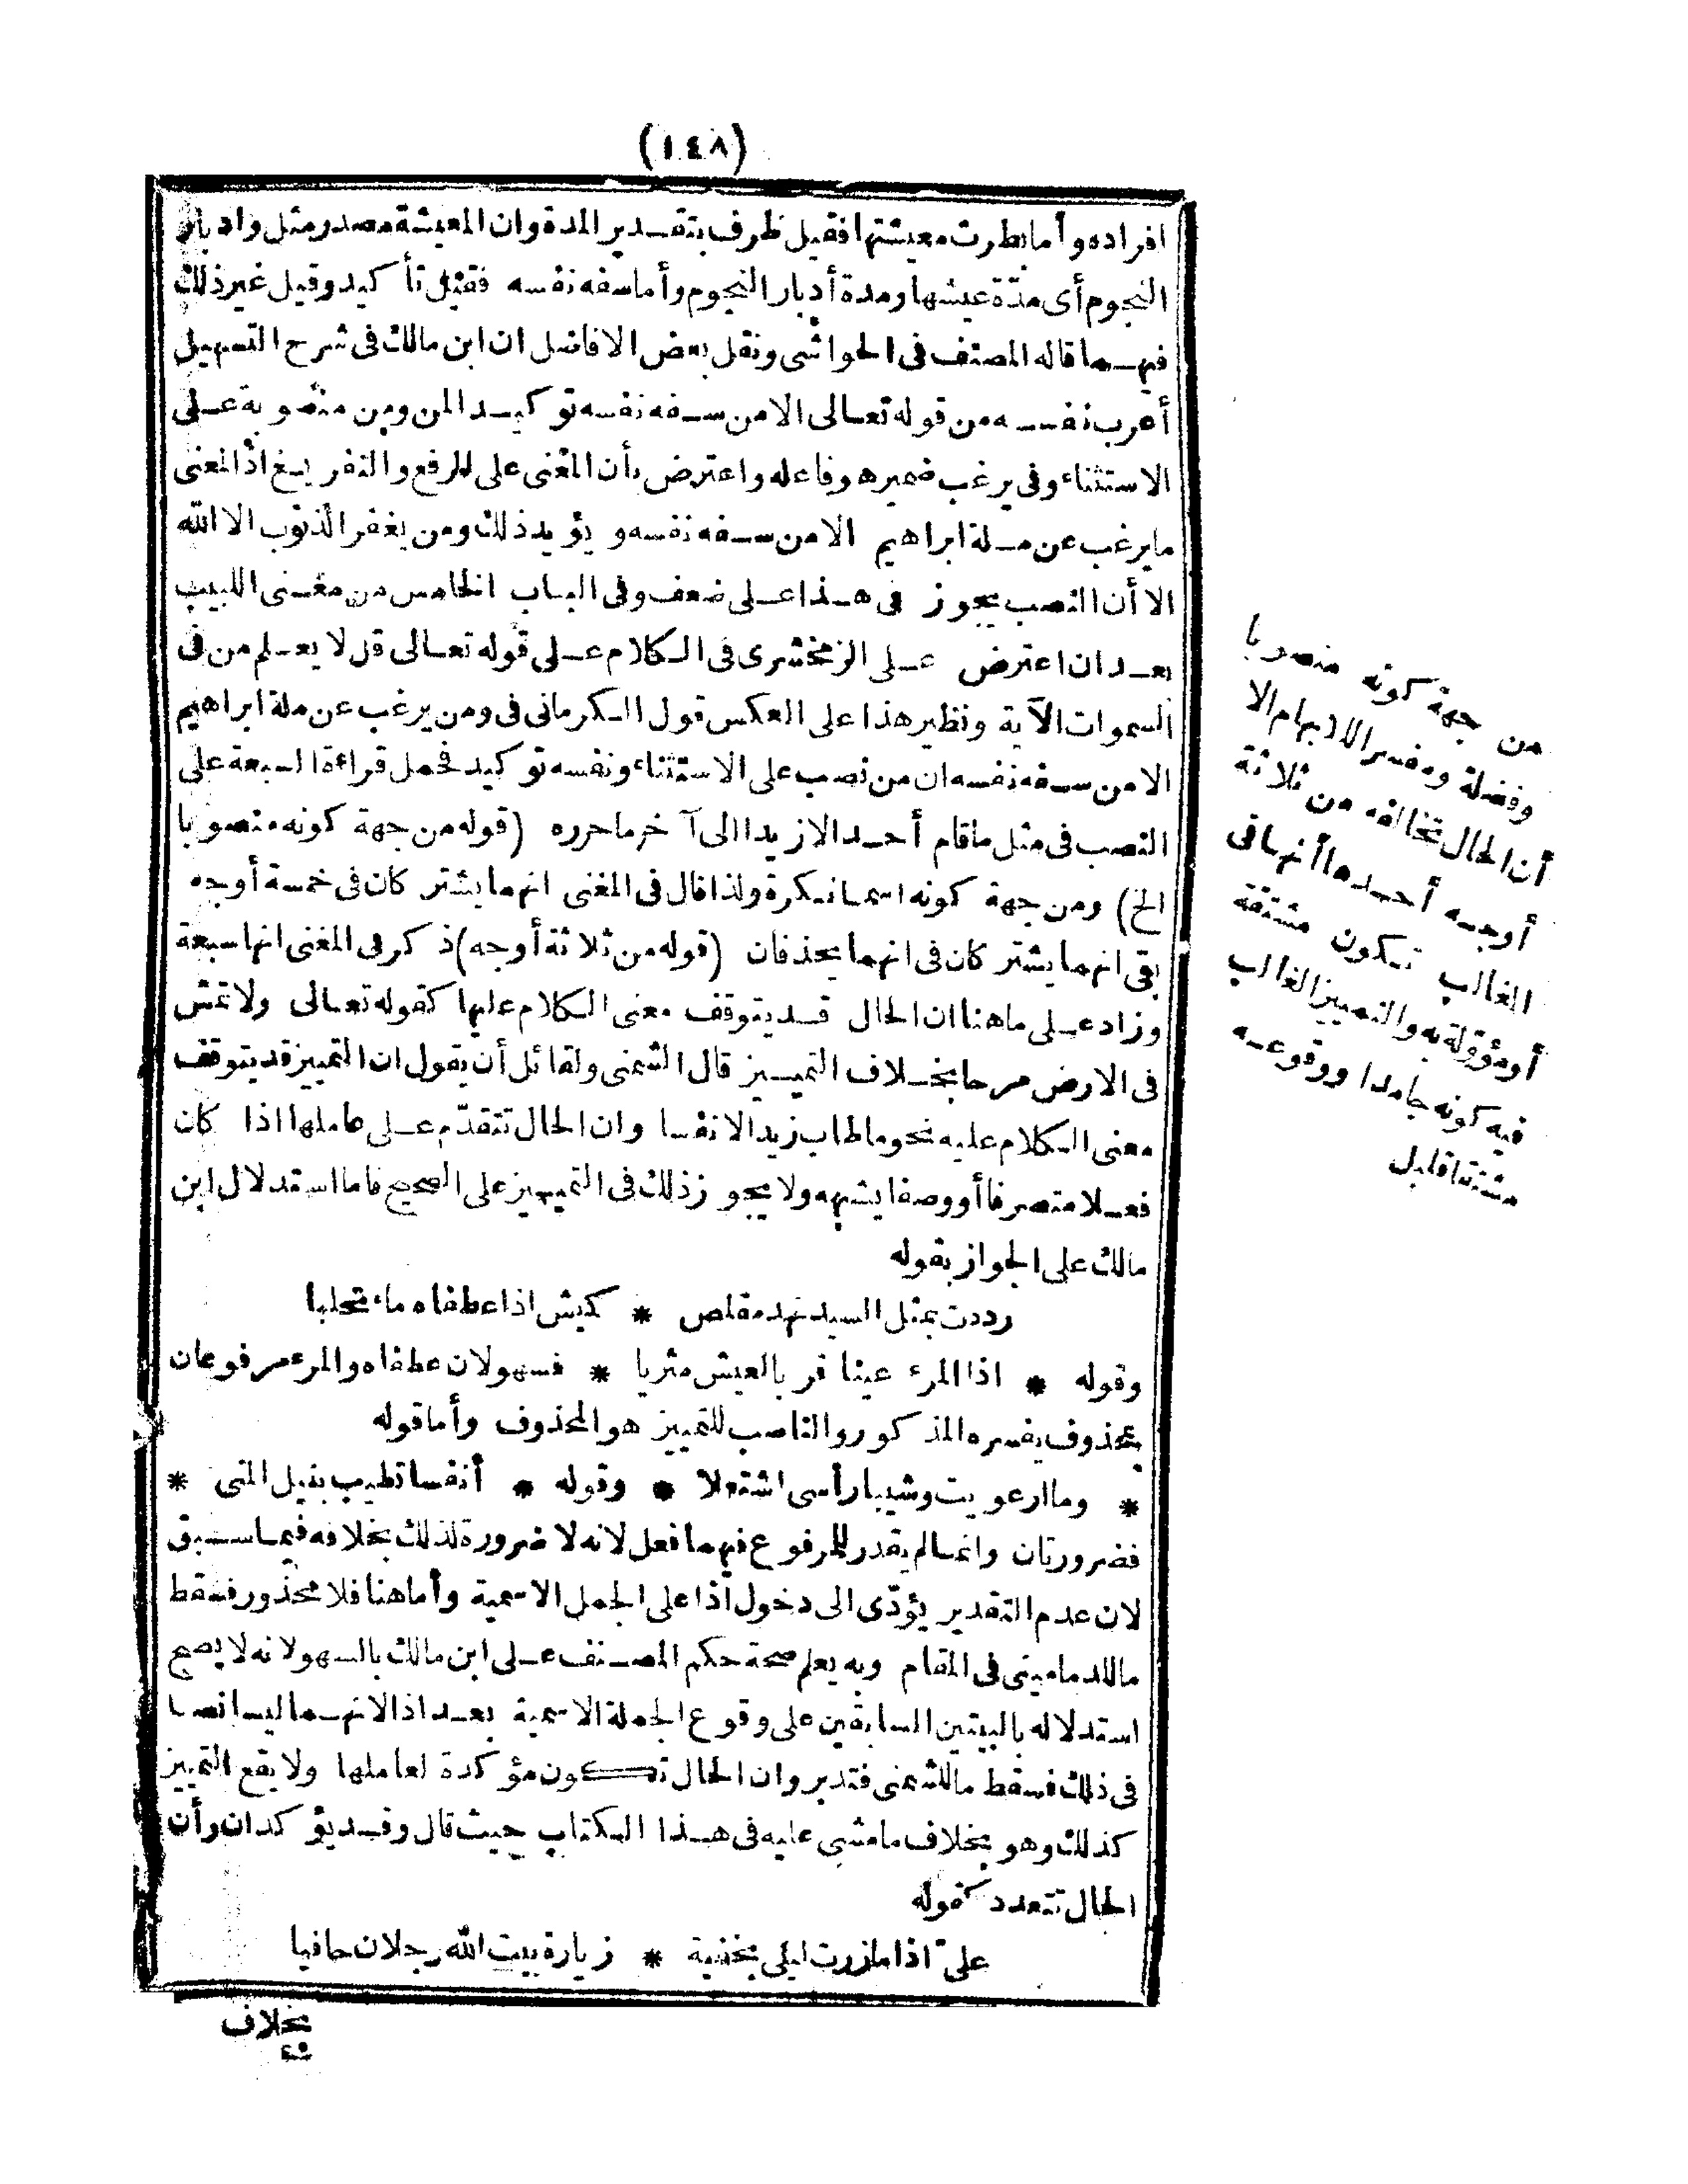 (١٤٨)
افراده وأما بطرت معيشتها فقيل ظرف بتقدير المدة وان المعيشة مصدر مثل وادبار
النجوم أى مدّة عيشها ومدة أدبار النجوم وأما سفه نفسه فقيل تأكيد وقيل غير ذلك
فيهما قاله المصنف فى الحواشى ونقل بعض الافاضل ان ابن مالك فى شرح التسهيل
أعرب نفسه من قوله تعالى الا من سفه نفسه توكيد المن ومن منصوبة على
الاستثناء وفى يرغب ضميره وفاعله واعترض بأن المعنى على الرفع والتفريغ اذ المعنى
ما يرغب عن ملة ابراهيم الا من سفه نفسه ويؤيد ذلك ومن يغفر الذنوب الا الله
الا أن النصب يجوز فى هذا على ضعف وفى الباب الخامس من مغنى اللبيب
بعد ان اعترض على الزمخشرى فى الكلام على قوله تعالى قل لا يعلم من فى
السموات الآية ونظير هذا على العكس قول الكرمانى فى ومن يرغب عن ملة ابراهيم
الا من سفه نفسه ان من نصب على الاستثناء ونفسه توكيد فحمل قراءة السبعة على
النصب فى مثل ما قام أحد الا زيدا الى آخر ما حرره (قوله من جهة كونه منصوبا
الخ) ومن جهة كونه اسما نكرة ولذا قال فى المغنى انهما يشتركان فى خمسة أوجه
بقى انهما يشتركان فى انهما يحذفان (قوله من ثلاثة أوجه) ذكر فى المغنى انها سبعة
وزاد على ما هنا ان الحال قد يتوقف معنى الكلام عليها كقوله تعالى ولا تمش
فى الارض مرحا بخلاف التمييز قال الشمنى ولقائل أن يقول ان التمييز قد يتوقف
معنى الكلام عليه نحو ما طاب زيد الا نفسا وان الحال تتقدّم على عاملها اذا كان
فعلا متصرفا أو وصفا يشبهه ولا يجوز ذلك فى التمييز على الصحيح فاما استدلال ابن
مالك على الجواز بقوله
رددت بمثل السيد نهد مقلص * كميش اذا عطفاه ماء تحلبا
وقوله * اذا المرء عينا قر بالعيش مثريا * فسهو لان عطفاه والمرء مرفوعان
بمحذوف يفسره المذكور والناصب للتمييز هو المحذوف وأما قوله
* وما ارعويت وشيبا رأسى اشتعلا * وقوله * أنفسا تطيب بنيل المنى *
فضرورتان وانما لم يقدر للمرفوع فيهما فعل لانه لا ضرورة لذلك بخلافه فيما سبق
لان عدم التقدير يؤدّى الى دخول اذا على الجمل الاسمية وأما هنا فلا محذور فسقط
ما للدمامينى فى المقام وبه يعلم صحة حكم المصنف على ابن مالك بالسهو لانه لا يصح
استدلاله بالبيتين السابقين على وقوع الجملة الاسمية بعد اذا لانهما ليسا نصا
فى ذلك فسقط ما للشمنى فتدبر وان الحال تكون مؤكدة لعاملها ولا يقع التمييز
كذلك وهو بخلاف ما مشى عليه فى هذا الكتاب حيث قال وقد يؤكدان وأن
الحال تتعدد كقوله
علىّ اذا ما زرت ليلى بخفية * زيارة بيت الله رجلان حافيا
بخلاف
من جهة كونه منصوبا
وفضلة ومفسر الابهام الا
أن الحال تخالفه من ثلاثة
أوجه أحدها أنها فى
الغالب تكون مشتقة
أو مؤوّلة به والتمييز الغالب
فيه كونه جامدا ووقوعه
مشتقا قليل